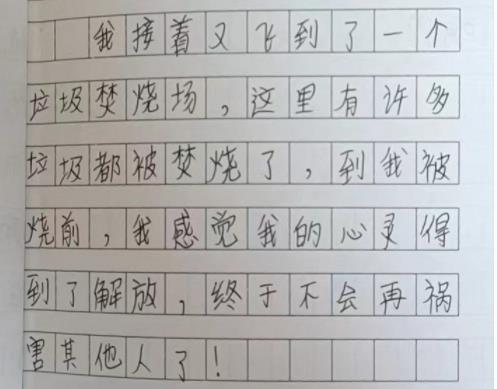 我接着又飞到了一个
垃圾焚烧场，这里有许多
垃圾都被焚烧了，到我被
烧前，我感觉我的心灵得
到了解放，终于不会再祸
害其他人了！